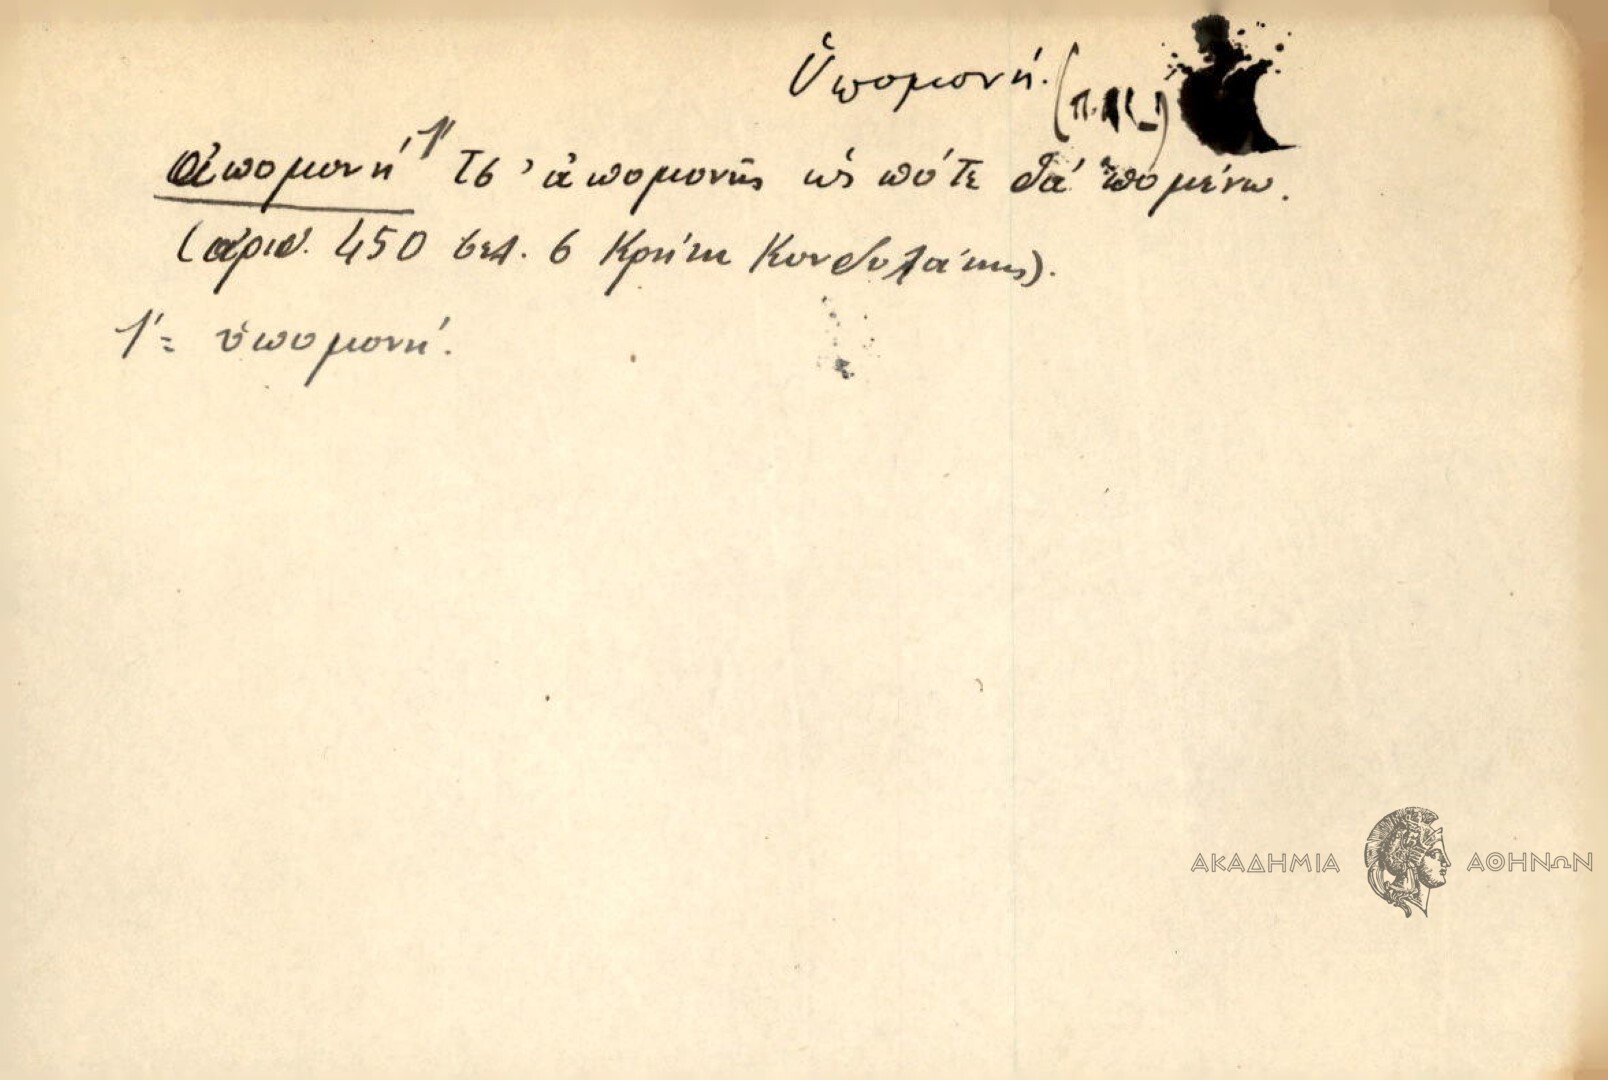 Ὑπομονή.
ἀπομονή 1) τσ' ἀπομονῆς ὡς πότε θά 'πομένω.
(ἀριθ. 450 σελ. 6 Κρήτη Κονδυλάκης).
1) = ὑπομονή.
ΑΚΑΔΗΜΙΑ ΑΘΗΝΩΝ